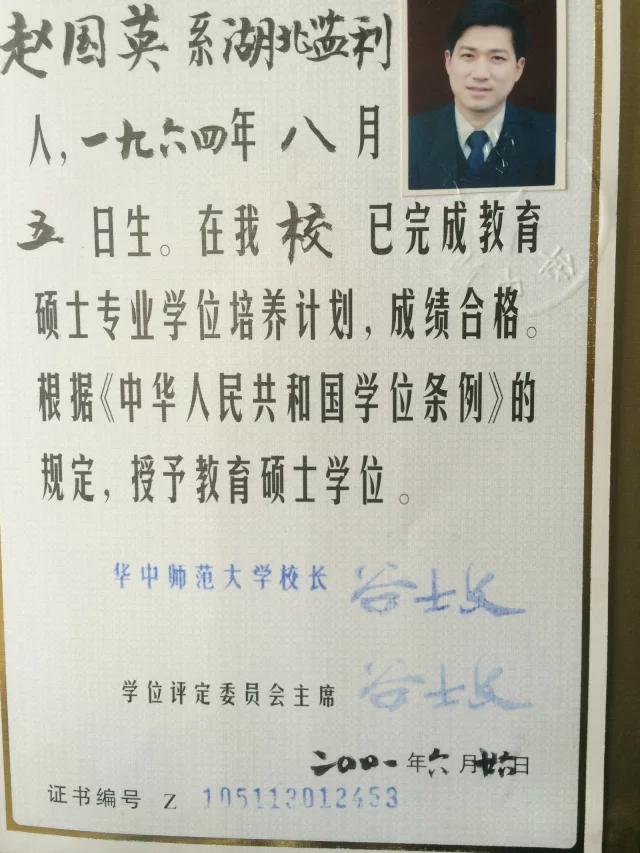 赵国英系湖北监利
人，一九六四年八月
五日生。在我校已完成教育
硕士专业学位培养计划，成绩合格。
根据《中华人民共和国学位条例》的
规定，授予教育硕士学位。
华中师范大学校长
学位评定委员会主席
二00一年六月廿六日
证书编号 Z 105113012453